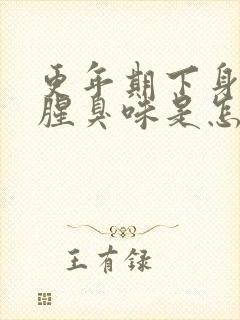 更年期下身
腥臭味是怎
王有録